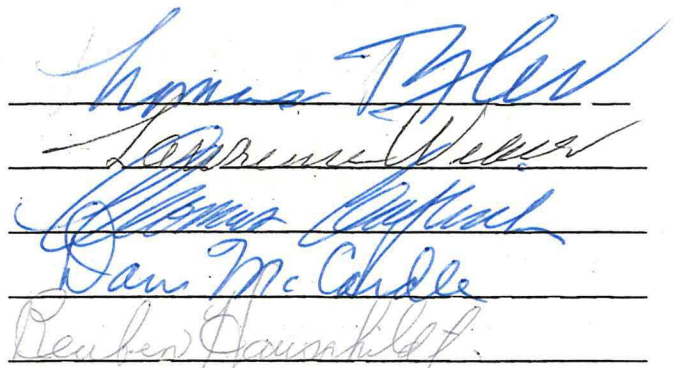 Thomas Tyler
Lawrence Weaver
Thomas
Dan McCardle
Reuben Hauschildt